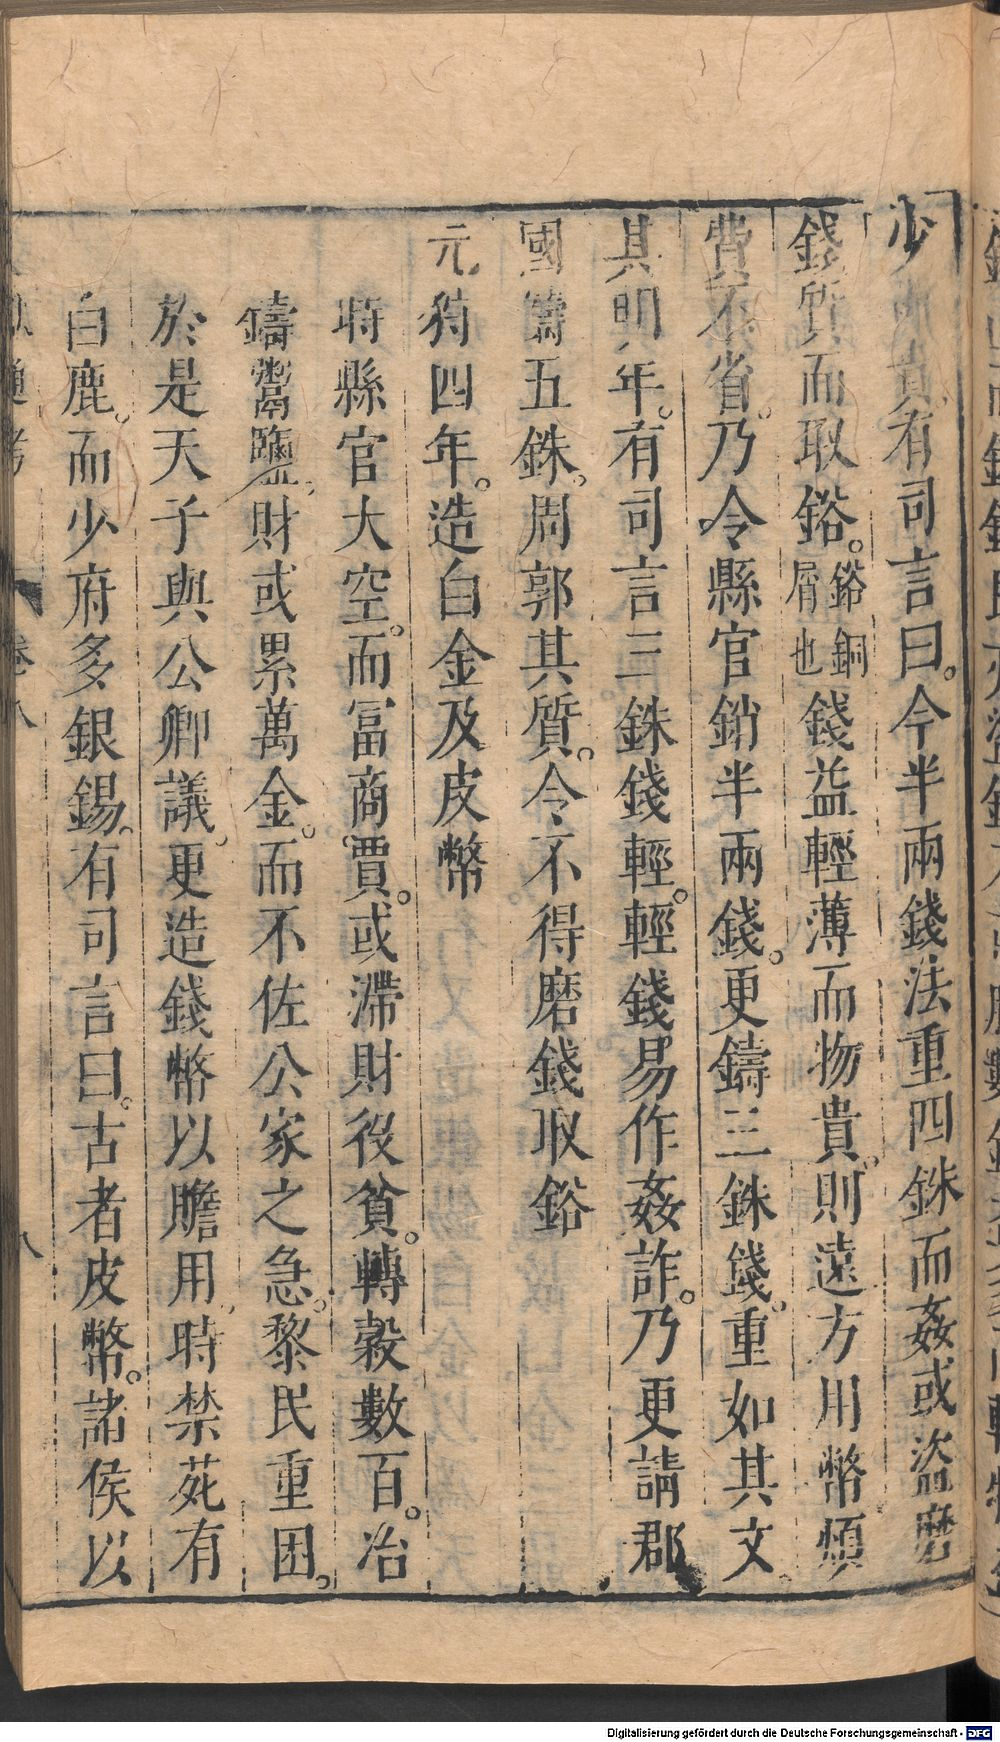 少而貴有司言曰今半兩錢法重四銖而姦或盜磨
錢質而取鋊鋊銅屑也錢益輕薄而物貴則遠方用幣煩
費不省乃令縣官銷半兩錢更鑄三銖錢重如其文
其明年有司言三銖錢輕輕錢易作姦詐乃更請郡
國鑄五銖周郭其質令不得磨錢取鋊
元狩四年造白金及皮幣
時縣官大空而冨商賈或滯財役貧轉穀數百冶
鑄鬻鹽財或累萬金而不佐公家之急黎民重困
於是天子與公卿議更造錢幣以贍用時禁苑有
白鹿而少府多銀錫有司言曰古者皮幣諸侯以
通考
卷八
八
Digitalisierung gefördert durch die Deutsche Forschungsgemeinschaft - DFG